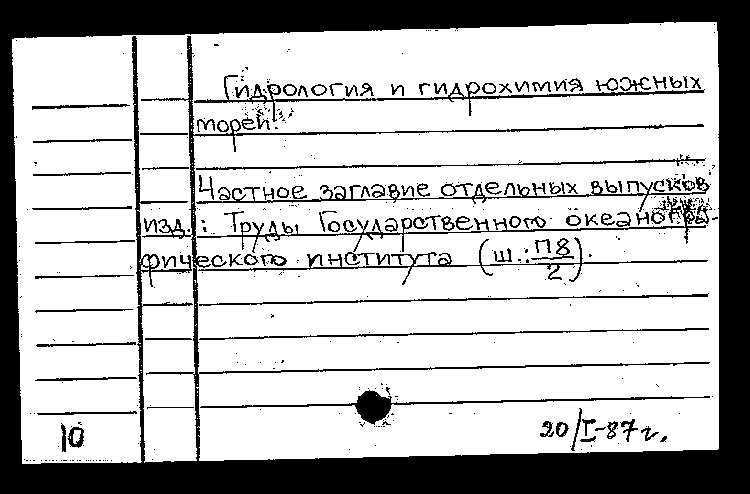 Гидрология и гидрохимия южных
морей.
Частное заглавие отдельных выпусков
изд.: Труды Государственного океаногра-
фического института (ш.: П8/2).
10
20/I-87 г.